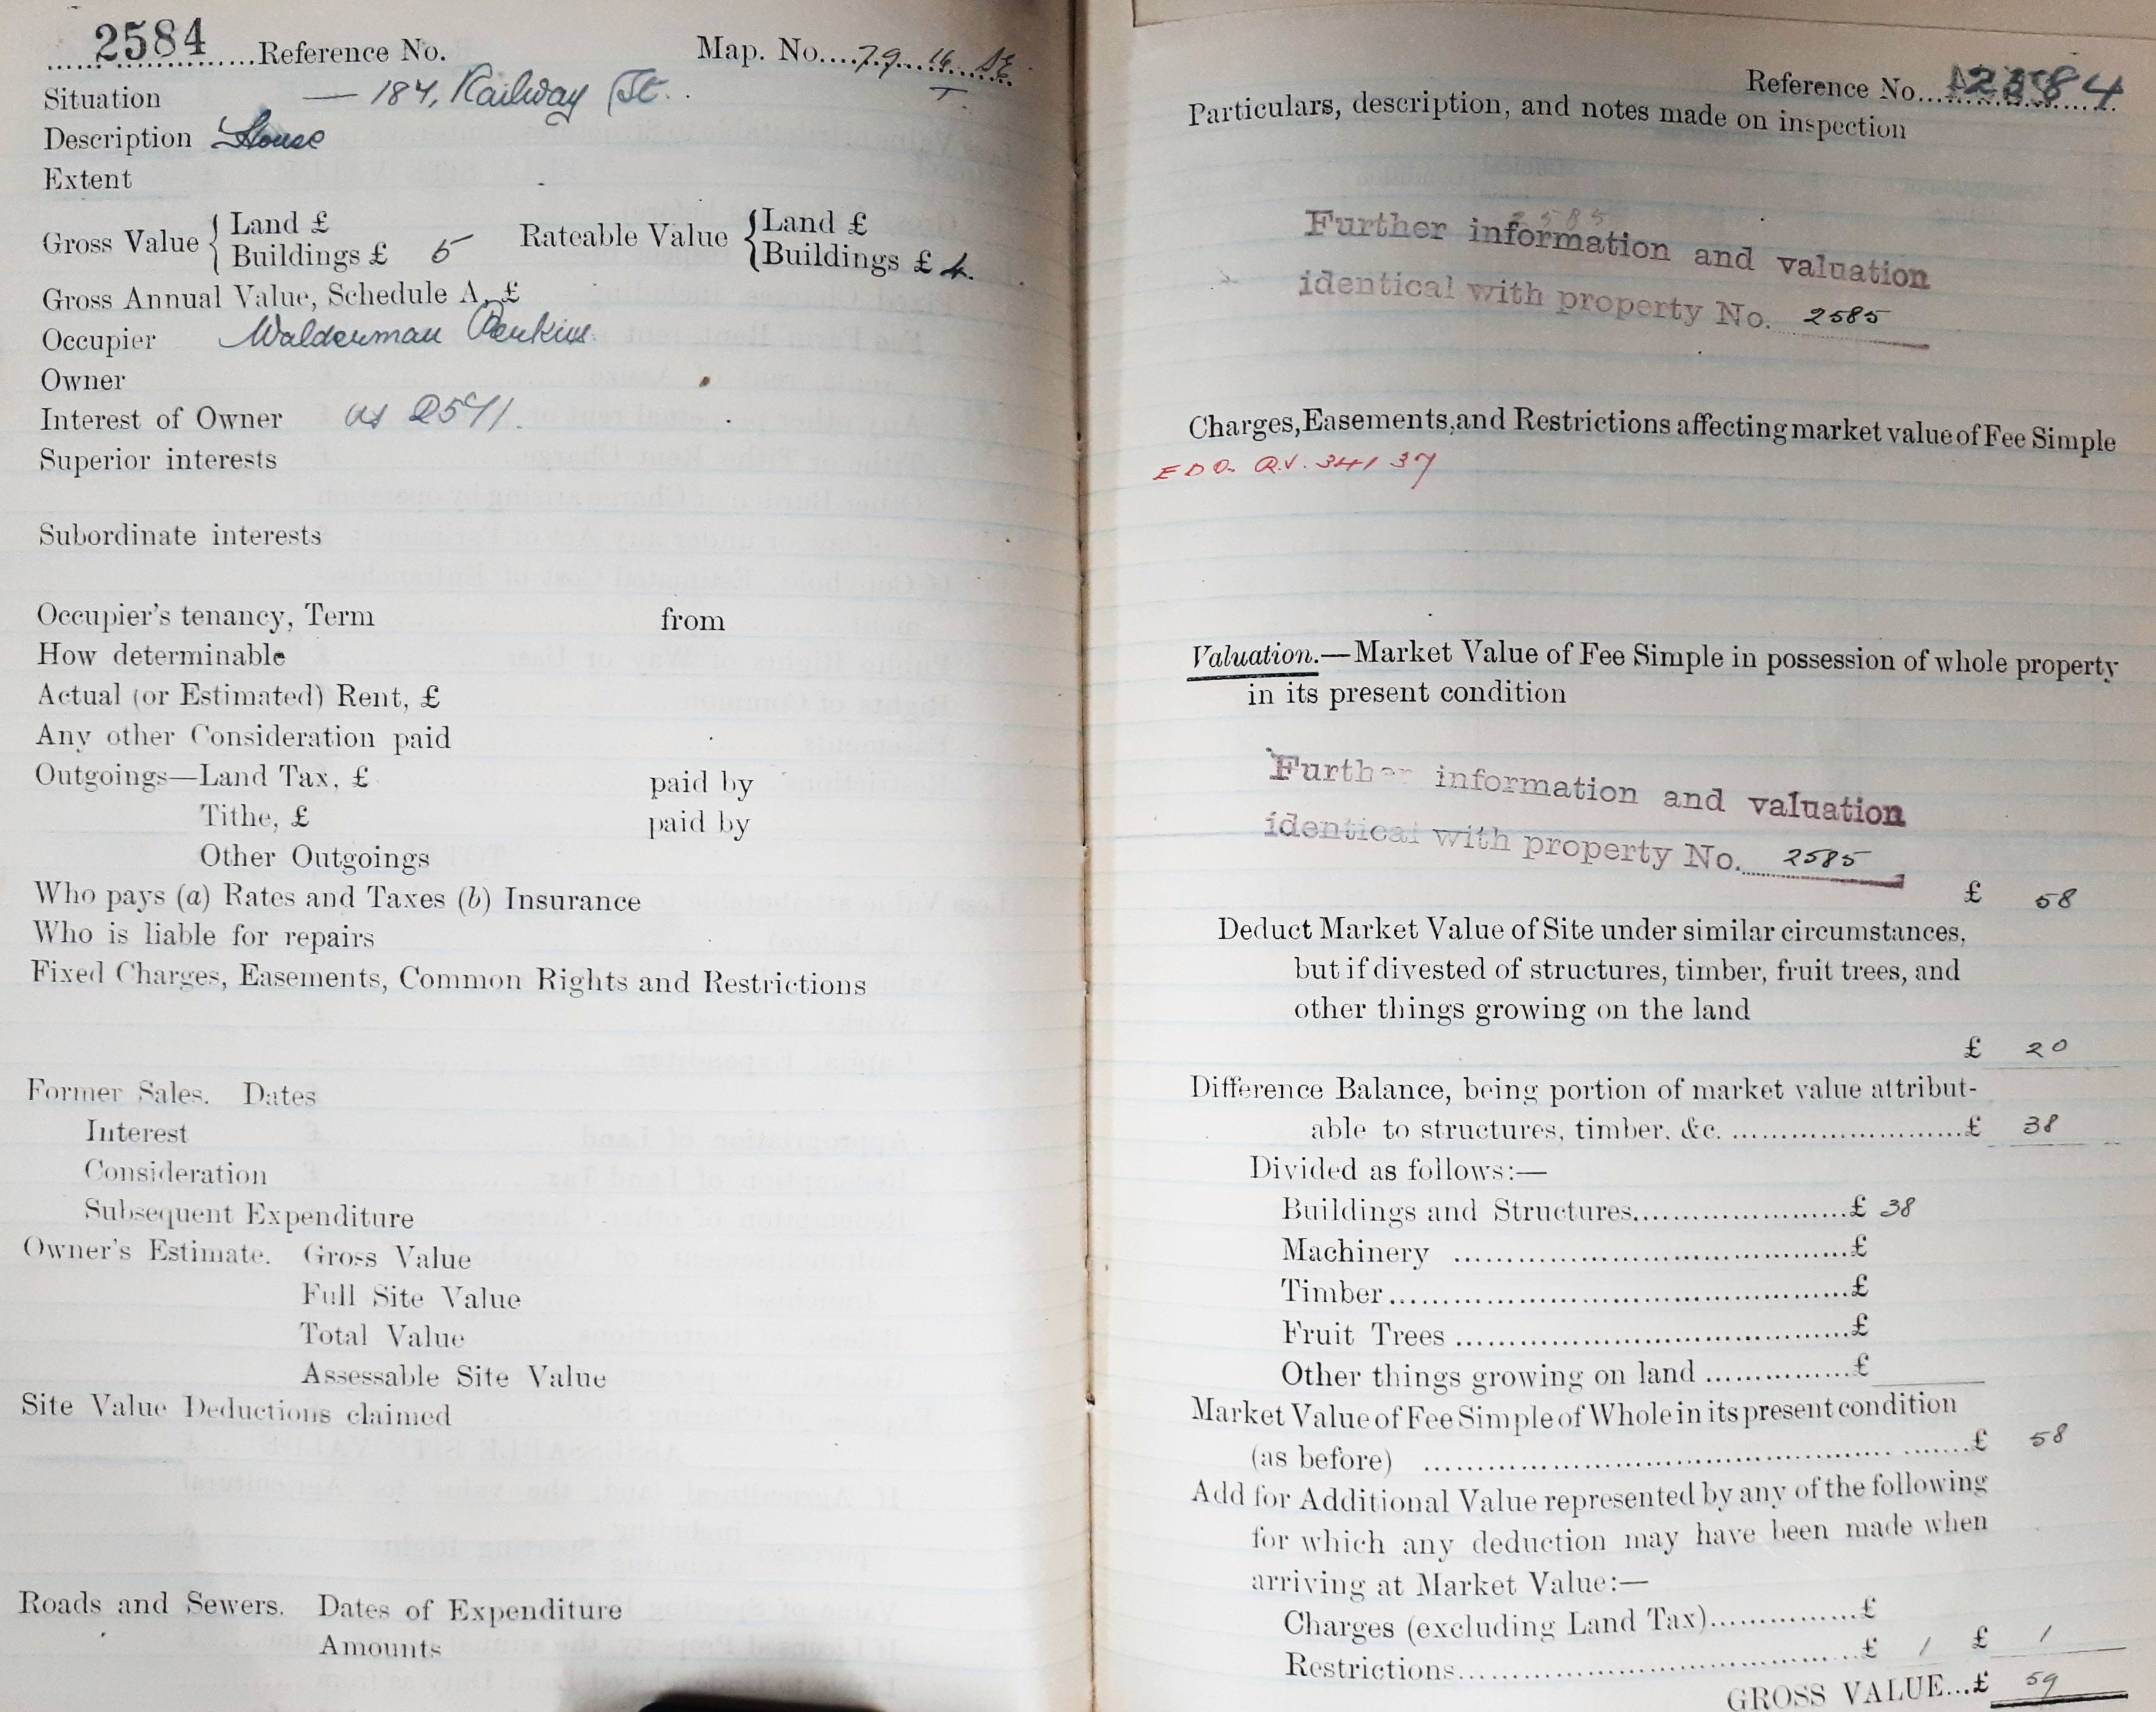 2584 Reference No. Map. No. 79. 16. SE
T.
Situation — 184, Railway St.
Description House
Extent
Gross Value { Land £
Buildings £ 5
Rateable Value { Land £
Buildings £ 4.
Gross Annual Value, Schedule A, £
Occupier Walderman Perkins.
Owner
Interest of Owner as 2541.
Superior interests
Subordinate interests
Occupier's tenancy, Term from
How determinable
Actual (or Estimated) Rent, £
Any other Consideration paid
Outgoings—Land Tax, £ paid by
Tithe, £ paid by
Other Outgoings
Who pays (a) Rates and Taxes (b) Insurance
Who is liable for repairs
Fixed Charges, Easements, Common Rights and Restrictions
Former Sales. Dates
Interest
Consideration
Subsequent Expenditure
Owner's Estimate. Gross Value
Full Site Value
Total Value
Assessable Site Value
Site Value Deductions claimed
Roads and Sewers. Dates of Expenditure
Amounts
Reference No. 2584
Particulars, description, and notes made on inspection
2585
Further information and valuation
identical with property No. 2585
Charges, Easements, and Restrictions affecting market value of Fee Simple
E D O. R.V. 34137
Valuation.—Market Value of Fee Simple in possession of whole property
in its present condition
Further information and valuation
identical with property No. 2585
£ 58
Deduct Market Value of Site under similar circumstances,
but if divested of structures, timber, fruit trees, and
other things growing on the land
£ 20
Difference Balance, being portion of market value attribut-
able to structures, timber, &c. £ 38
Divided as follows:—
Buildings and Structures £ 38
Machinery £
Timber £
Fruit Trees £
Other things growing on land £
Market Value of Fee Simple of Whole in its present condition
(as before) £ 58
Add for Additional Value represented by any of the following
for which any deduction may have been made when
arriving at Market Value:—
Charges (excluding Land Tax) £
Restrictions £ 1 £ 1
GROSS VALUE...£ 59